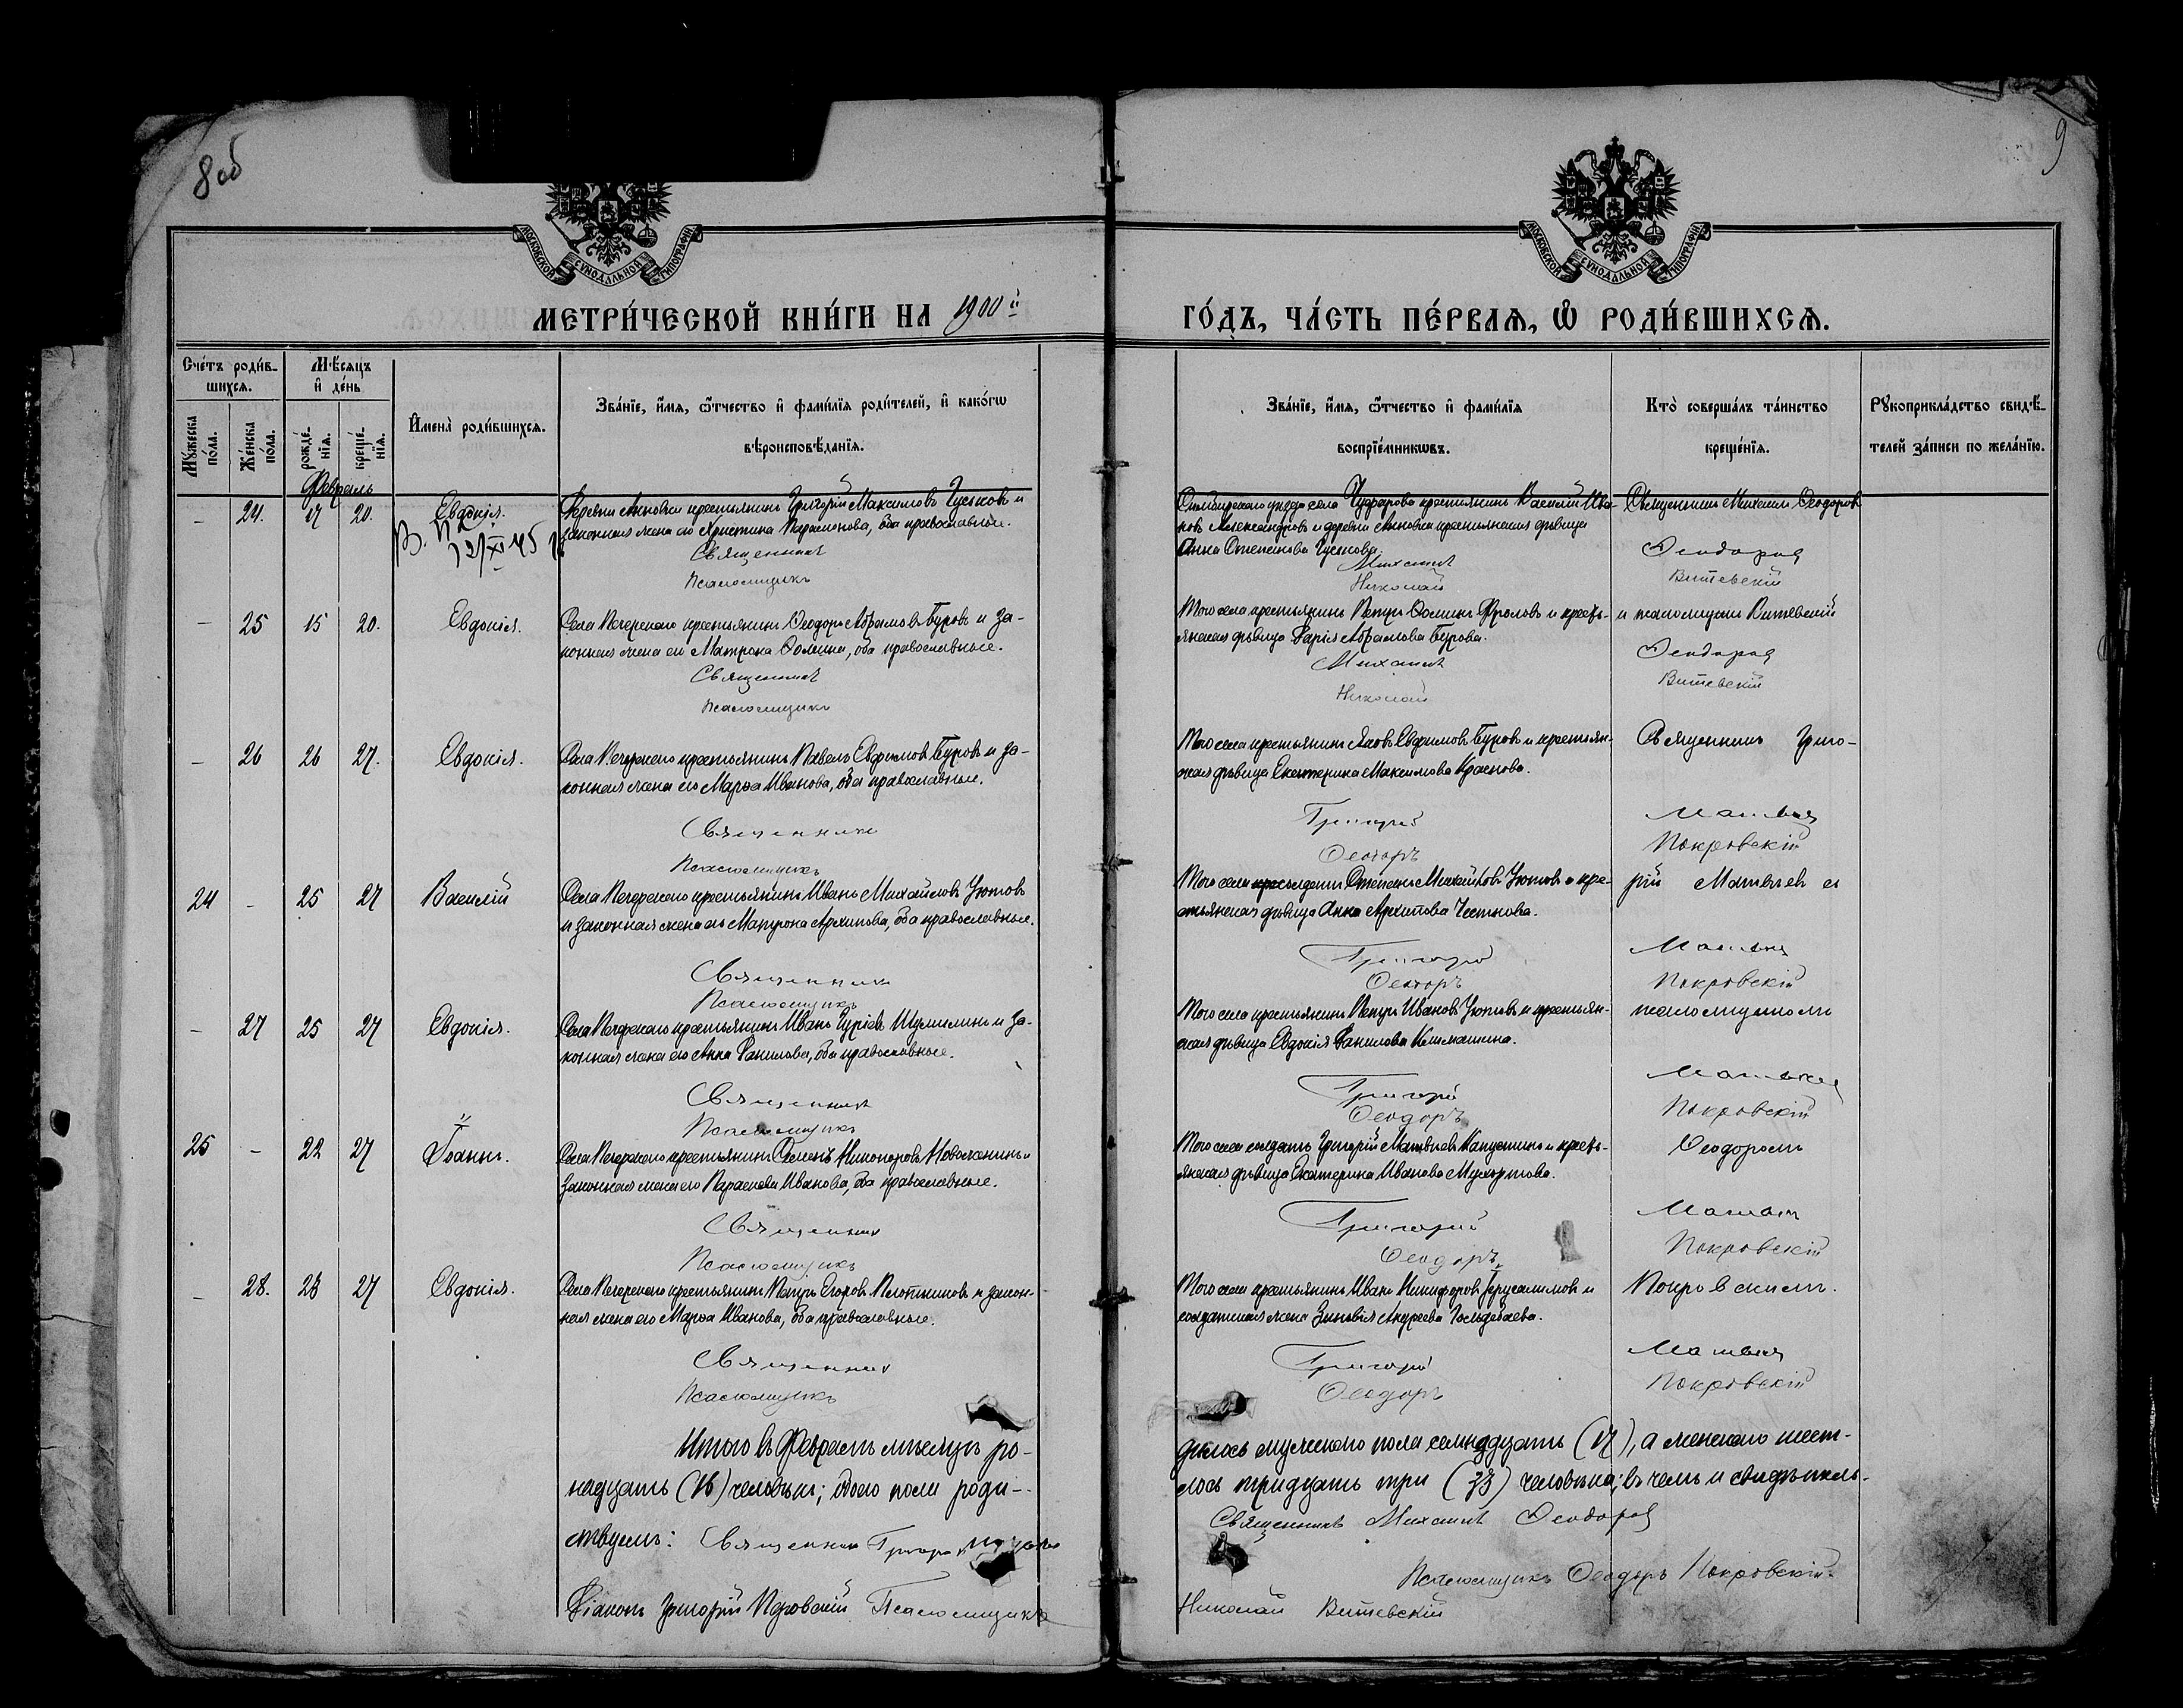 8 об
9
МОСКОВСКОЙ СѴНОДАЛЬНОЙ ТИПОГРАФІИ
МОСКОВСКОЙ СѴНОДАЛЬНОЙ ТИПОГРАФІИ
МЕТРИ́ЧЕСКОЙ КНИ́ГИ НА 1900й
ГО́ДЪ, ЧА́СТЬ ПЕ́РВАѦ, Ѡ РОДИ́ВШИХСѦ.
Сче́тъ роди́в-
шихсѧ.
Мѣ́сѧцъ
и҆ де́нь
Мꙋ́жеска
по́ла.
Же́нска
по́ла.
рожде́-
нїѧ.
креще́-
нїѧ.
И҆мена̀ роди́вшихсѧ.
Зва́нїе, и҆́мѧ, ѻ҆́тчество и҆ фами́лїѧ роди́телей, и҆ како́гѡ
вѣроисповѣ́данїѧ.
Зва́нїе, и҆́мѧ, ѻ҆́тчество и҆ фами́лїѧ
воспрїе́мникѡвъ.
Кто̀ соверша́лъ та́инство
креще́нїѧ.
Рꙋкоприкла́дство свидѣ́-
телей за́писи по жела́нїю.
Февраль
– 24. 17 20. Евдокія. Деревни Анновки крестьянинъ Григорій Максимовъ Гуськовъ и
законная жена его Христина Парамонова, оба православные.
Священникъ
Псаломщикъ
Симбирскаго уезда села Чуфарова крестьянинъ Василій Ива-
новъ Александровъ и деревни Анновки крестьянская дѣвица
Анна Степанова Гуськова.
Михаилъ
Николай
Священникъ Михаилъ Ѳеодоровъ
Ѳеодоровъ
Витевскій
– 25 15 20. Евдокія. Села Печерскаго крестьянинъ Ѳеодоръ Абрамовъ Буровъ и за-
конная жена его Матрона Ѳомина, оба православные.
Священникъ
Псаломщикъ
Того села крестьянинъ Петръ Ѳоминъ Фроловъ и кресть-
янская дѣвица Дарія Абрамова Бурова.
Михаилъ
Николай
и псаломщикъ Витевскій
Ѳеодоровъ
Витевскій
– 26 26 27. Евдокія. Села Печерскаго крестьянинъ Павелъ Евфимовъ Буровъ и за-
конная жена его Марѳа Иванова, оба православные.
Священникъ
Псаломщикъ
Того села крестьянинъ Яковъ Евфимовъ Буровъ и крестьян-
ская дѣвица Екатерина Максимова Краснова.
Григорій
Ѳеодоръ
Священникъ Григо-
Матвѣевъ
Покровскій
24 – 25 27 Василій Села Печерскаго крестьянинъ Иванъ Михайловъ Зютовъ
и законная жена его Матрона Архипова, оба православные.
Священникъ
Псаломщикъ
Степанъ Михайловъ Зютовъ и кре-
стьянская дѣвица Анна Архипова Честнова.
Григорій
Ѳеодоръ
рій Матвѣевъ съ
Матвѣевъ
Покровскій
– 27 25 27 Евдокія. Села Печерскаго крестьянинъ Иванъ Гурьевъ Шумилинъ и за-
конная жена его Анна Данилова, оба православные.
Священникъ
Псаломщикъ
Того села крестьянинъ Петръ Ивановъ Зютовъ и крестьян-
ская дѣвица Евдокія Данилова Климашина.
Григорій
Ѳеодоръ
псаломщикомъ
Матвѣевъ
Покровскій
25 – 22 27 Іоаннъ. Села Печерскаго крестьянинъ Семенъ Никоноровъ Новоженинъ и
законная жена его Параскева Иванова, оба православные.
Священникъ
Псаломщикъ
Того села солдатъ Григорій Матвѣевъ Капустинъ и кресть-
янская дѣвица Екатерина Иванова
Григорій
Ѳеодоръ
Ѳеодоромъ
Матвѣевъ
Покровскій
– 28. 28 27 Евдокія. Села Печерскаго крестьянинъ Петръ Егоровъ Плотниковъ и закон-
ная жена его Марѳа Иванова, оба православные.
Священникъ
Псаломщикъ
Того села крестьянинъ Иванъ Никифоровъ Іерусалимовъ и
солдатская жена Зиновія Андреева
Григорій
Ѳеодоръ
Покровскимъ.
Матвѣевъ
Покровскій
Итого въ Февралѣ мѣсяцѣ ро-
дилось мужескаго пола семнадцать (17), а женскаго шест-
надцать (16) человѣкъ; обоего пола роди-
лось тридцать три (33) человѣка; въ чемъ и свидѣтель-
ствуемъ: Священникъ Григорій
Священникъ Михаилъ Ѳеодоровъ
Псаломщикъ Ѳеодоръ Покровскій
Діаконъ Григорій Псаломщикъ
Николай Витевскій